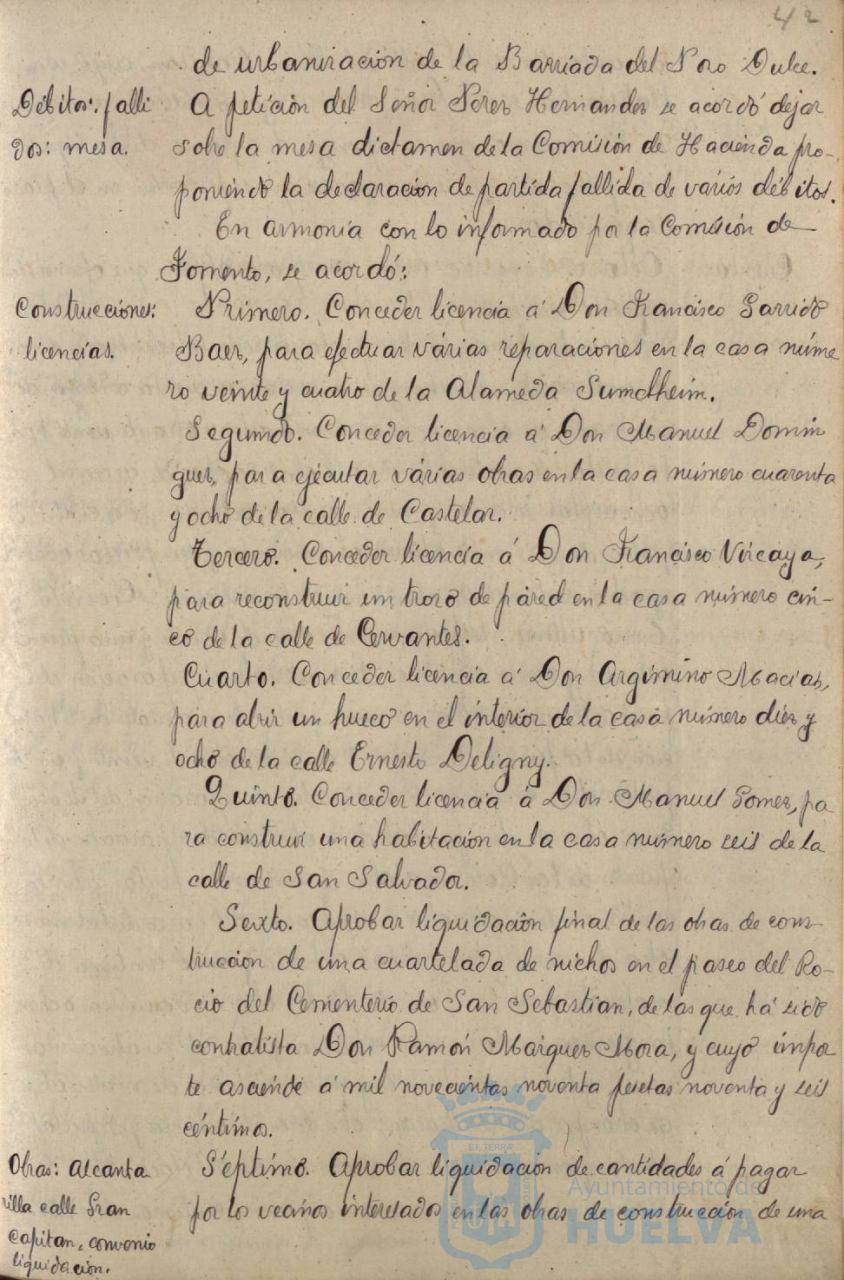 42
de urbanización de la Barriada del Pozo Dulce.
Débitos: falli
dos: mesa.
A petición del Señor Perez Hernandez se acordó dejar
sobre la mesa dictamen de la Comisión de Hacienda pro-
poniendo la declaración de partida fallida de varios débitos.
En armonía con lo informado por la Comisión de
Fomento, se acordó:
Construcciones:
licencias.
Primero. Conceder licencia á Don Francisco Garrido
Baez, para efectuar várias reparaciones en la casa núme
ro veinte y cuatro de la Alameda Sumdheim.
Segundo. Conceder licencia á Don Manuel Domin
guez, para ejecutar várias obras en la casa número cuarenta
y ocho de la calle de Castelar.
Tercero. Conceder licencia á Don Francisco Vizcaya,
para reconstruir un trozo de páred en la casa número cin-
co de la calle de Cervantes.
Cuarto. Conceder licencia á Don Argimino Macias,
para abrir un hueco en el interior de la casa número diez y
ocho de la calle Ernesto Deligny.
Quinto. Conceder licencia á Don Manuel Gomez, pa
ra construir una habitación en la casa número seis de la
calle de San Salvador.
Sexto. Aprobar liquidación final de las obras de cons-
trucción de una cuartelada de nichos en el paseo del Ro-
cio del Cementerio de San Sebastian, de las que há sido
contratista Don Ramón Marquez Mora, y cuyo impor
te asciende á mil novecientas noventa pesetas noventa y seis
céntimos.
Obras: alcanta
rilla calle Gran
Capitan, convenio
liquidación.
Séptimo. Aprobar liquidación de cantidades á pagar
por los vecinos interesados en las obras de construcción de una
Ayuntamiento de
HUELVA